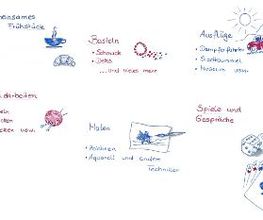 Frühstück
Basteln
• Schmuck
• Deko
...und vieles mehr
Ausflüge
• Dampferfahrten
• Stadtbummel
• Museum usw.
Malen
• Acryl
• Aquarell und andere
Techniken
Spiele und
Gespräche